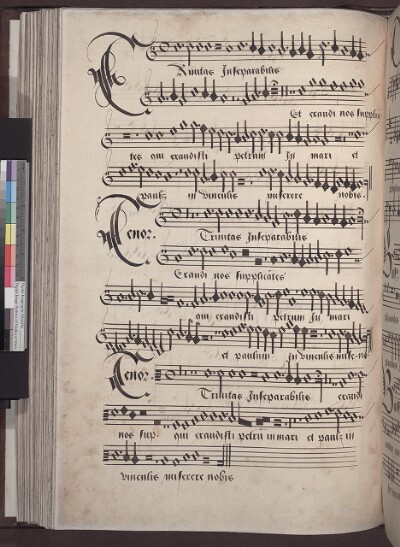 Rinitas Inseparabilis
Et exaudi nos supplica
tes qui exaudisti petrum In mari et
paulum in vinculis miserere nobis.
Tenor.
Trinitas Inseparabilis
Exaudi nos supplicātes
qui exaudisti Petrum In mari
et paulum in vinculis mise-no
Tenor.
Trinitas Inseparabilis exaudi
nos sup- qui exaudisti petrū in mari et paulū in
vinculis miserere nobis